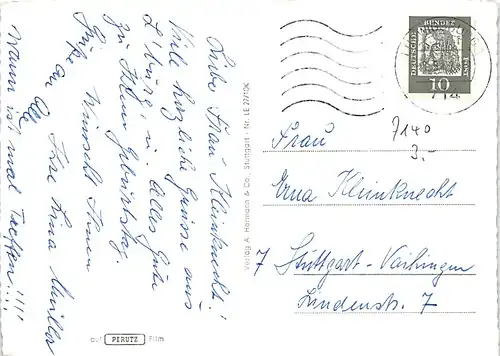 Liebe Frau Kleinknecht!
Viele herzliche Grüsse aus
L'burg u. alles Gute
zu Ihrem Geburtstag.
wünscht Ihnen
Ihre Lina Müller
Grüße an alle
Wann ist mal Treffen!!!!
Verlag A. Hermann & Co., Stuttgart - Nr. LE 27/106
auf PERUTZ Film
DEUTSCHE BUNDESPOST
10
7140
3.-
Frau
Erna Kleinknecht
7 Stuttgart-Vaihingen
Lindenstr. 7